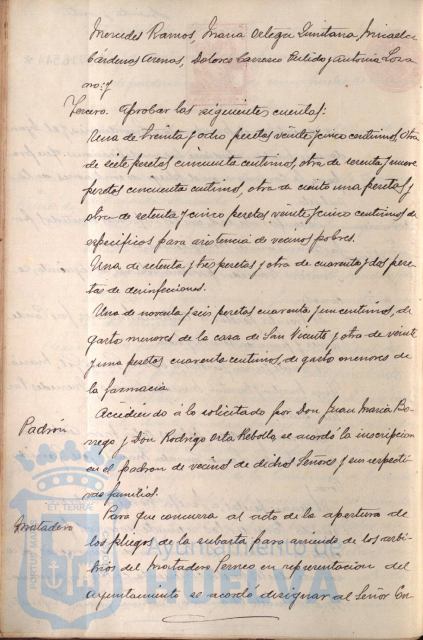 Mercedes Ramos, Maria Ortega Quintana, Micaela
Cárdenas Arenas, Dolores Carrasco Pulido y Antonia Loza
no: y
Tercero. Aprobar las siguientes cuentas:
Una de treinta y ocho pesetas veinte y cinco centimos, otra
de siete pesetas cincuenta centimos, otra de y nueve
pesetas cincuenta centimos, otra de ciento una pesetas y
otra de setenta y cinco pesetas veinte y cinco centimos de
especificos para asistencia de vecinos pobres.
Una de setenta y tres pesetas y otra de cuarenta y dos pese
tas de desinfecciones.
Una de noventa y seis pesetas cuarenta y un centimos, de
gastos menores de la casa de San Vicente y otra de veinte
y una pesetas cuarenta centimos, de gastos menores de
la farmacia.
Padrón
Accediendo á lo solicitado por Don Juan Maria Bo
rrego y Don Rodrigo Orta Rebollo, se acordó la inscripcion
en el padron de vecinos de dichos Señores y sus respecti
vas familias.
Matadero
Para que concurra al acto de la apertura de
los pliegos de la subasta para arriendo de los arbi
trios del Matadero Perneo en representacion del
Ayuntamiento se acordó designar al Señor Con
PORTUS MARIS
ET TERRAE
Ayuntamiento de
HUELVA